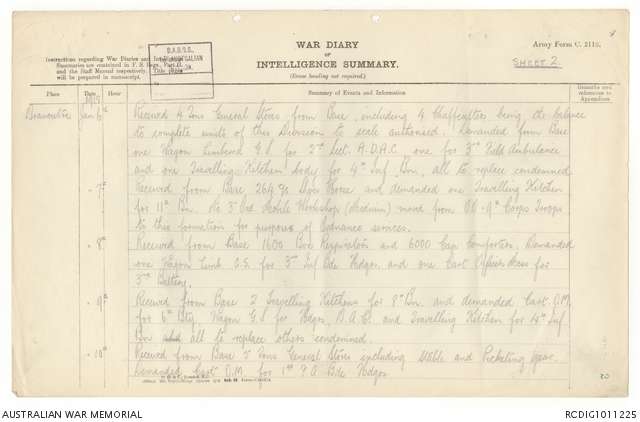 WAR DIARY
or
INTELLIGENCE SUMMARY.
(Erase heading not required.)
Army Form C. 2118.
SHEET 2
Instructions regarding War Diaries and Intelligence
Summaries are contained in F. S. Regs., Part II.
and the Staff Manual respectively. Title pages
will be prepared in manuscript.
D.A.D.O.S.
AUSTRALIAN
Place
Date
Hour
Summary of Events and Information
Remarks and references to Appendices
6th
Received 4 Tons General Stores from Base, including 4 the balance
to complete units of this Division to scale authorised. Demanded from Base
one Wagon Limbered G.S. for 2nd Sect. D.A.C., one for 3rd Field Ambulance
and one Travelling Kitchen body for 4th Inf Bn. all to replace condemned.
7th
Received from Base 264 prs Shoes Horse and demanded one Travelling Kitchen
for 11th Bn. No 3 Ord Mobile Workshop (Medium) moved from Corps Troops
to this formation for purposes of Ordnance services.
8th
Received from Base 1600 Box Respirators and 6000 Cap Comforters. Demanded
one Wagon Limb G.S. for 3rd Inf Bde Hdqrs. and one Cart Officers Mess for
3rd Battery.
9th
Received from Base 2 Travelling Kitchens for 8th Bn. and demanded Cart O.M.
for 6th Bty, Wagon G.S. for Hdqrs. D.A.C. and Travelling Kitchen for 4th Inf
Bn all to replace others condemned.
10th
Received from Base 5 Tons General Stores including Stable and Picketing Gear.
Demanded Cart O.M. for 1st F.A. Bde Hdqrs
AUSTRALIAN WAR MEMORIAL
RCDIG1011225